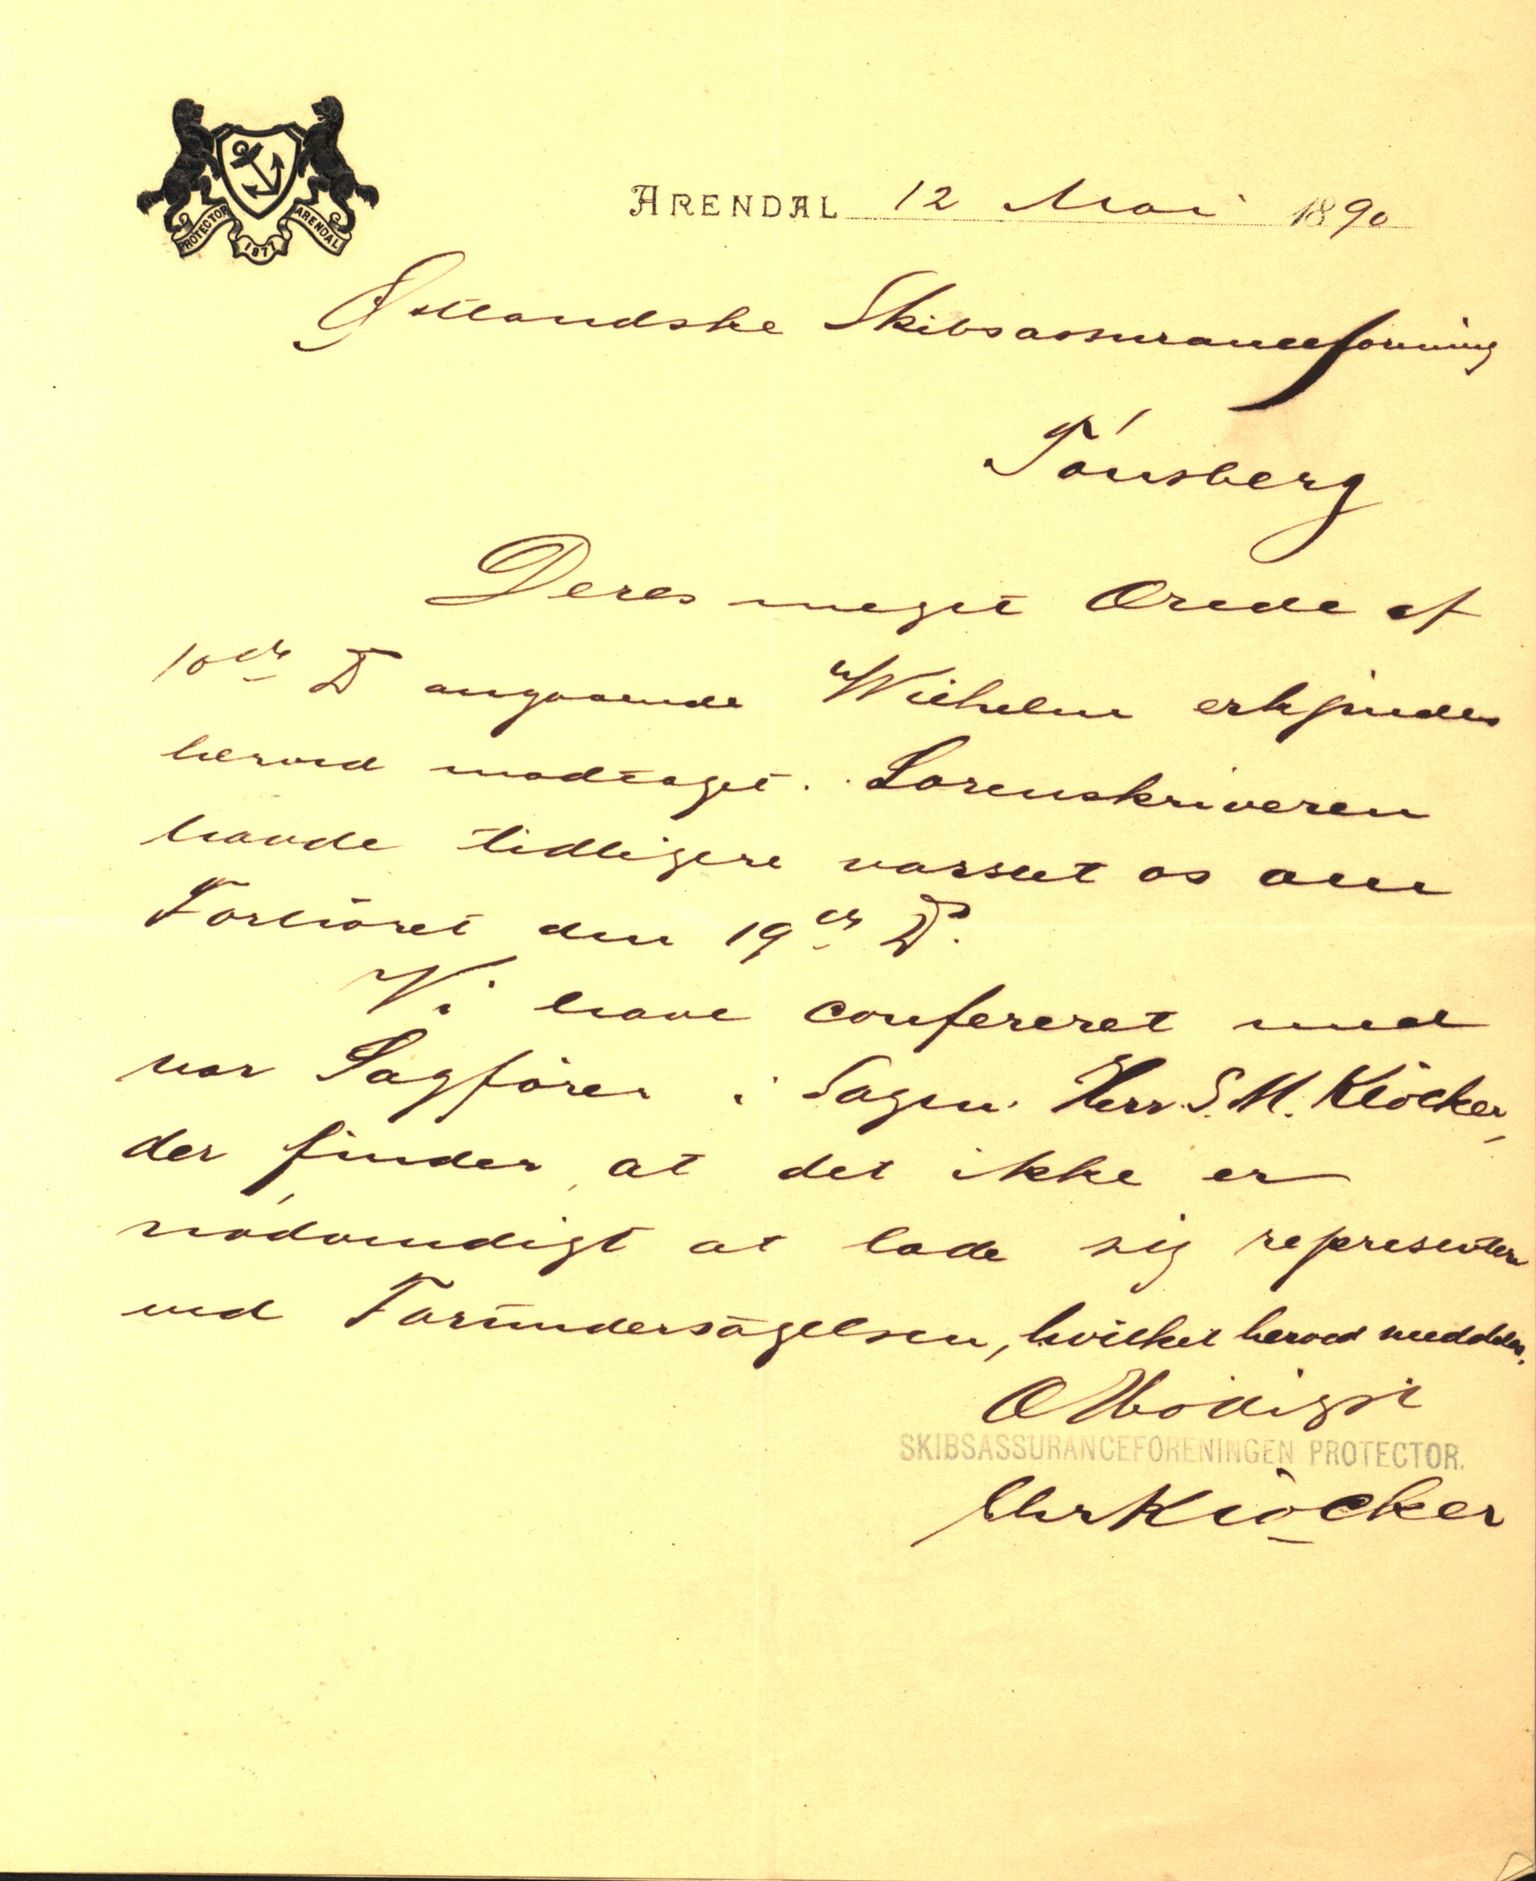 PROTECTOR 1877 ARENDAL
ARENDAL 12 Mai 1890
Østlandske Skibsassuranceforening
Tönsberg
Deres meget Ærede af
10de Ds angaaende "Wilhelm" erkjendes
herved modtaget. Sorenskriveren
havde tidligere varslet os om
Forhöret den 19de Ds.
Vi have confereret med
vor Sagförer i Sagen Herr S. M. Klöcker,
der finder, at det ikke er
nödvendigt at lade sig representere
ved Forundersögelsen, hvilket herved meddeles.
Ærbödigst
SKIBSASSURANCEFORENINGEN PROTECTOR.
Chr Klöcker